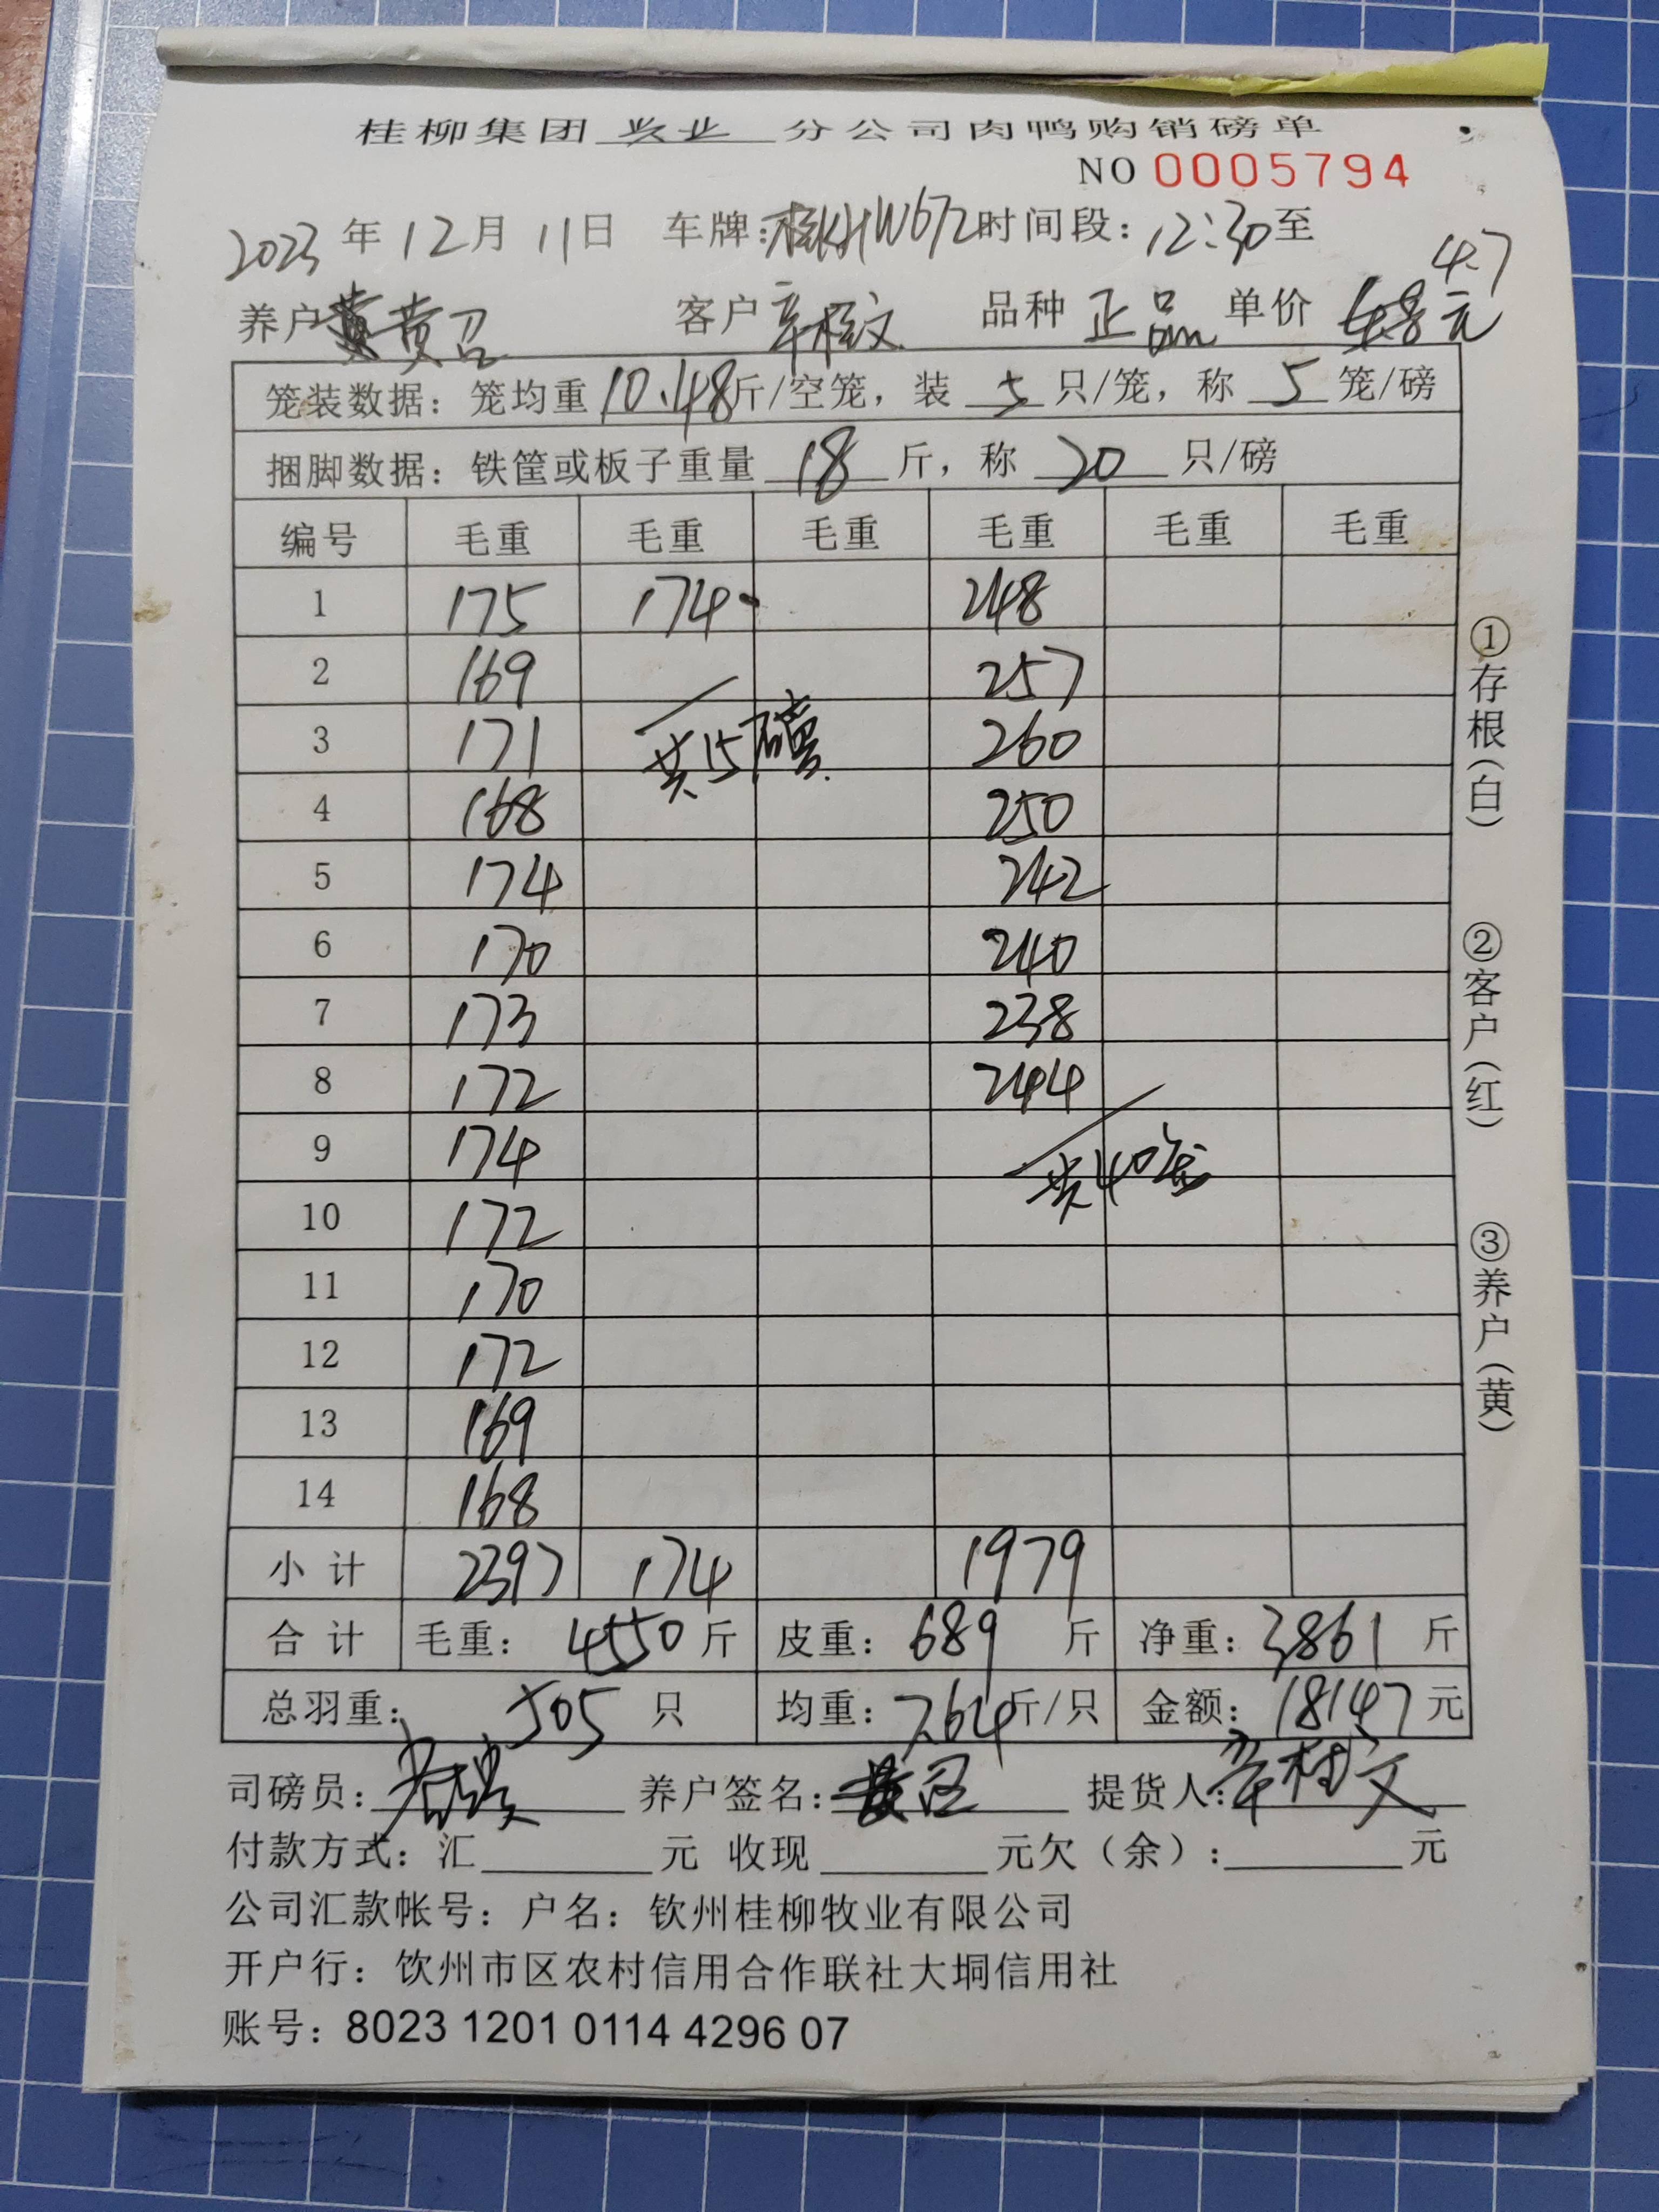 桂柳集团 兴业 分公司肉鸭购销磅单
NO 0005794
2023 年 12 月 11 日 车牌:桂KHW672 时间段: 12:30 至
4.7
养户 黄召 客户 辛桂文 品种 正品 单价 元
笼装数据: 笼均重 10.48 斤/空笼, 装 5 只/笼, 称 5 笼/磅
捆脚数据: 铁筐或板子重量 18 斤, 称 20 只/磅
编号 毛重 毛重 毛重 毛重 毛重 毛重
1 175 174 248
2 169 257
3 171 共15磅 260
4 168 250
5 174 242
6 170 240
7 173 238
8 172 244
9 174 共40笼
10 172
11 170
12 172
13 169
14 168
小计 2397 174 1979
合计 毛重: 4550 斤 皮重: 689 斤 净重: 3861 斤
总羽重: 505 只 均重: 7.64 斤/只 金额: 18147 元
司磅员: 养户签名: 黄召 提货人: 辛桂文
付款方式: 汇 元 收现 元欠(余): 元
公司汇款帐号: 户名: 钦州桂柳牧业有限公司
开户行: 饮州市区农村信用合作联社大垌信用社
账号: 8023 1201 0114 4296 07
①存根(白)
②客户(红)
③养户(黄)